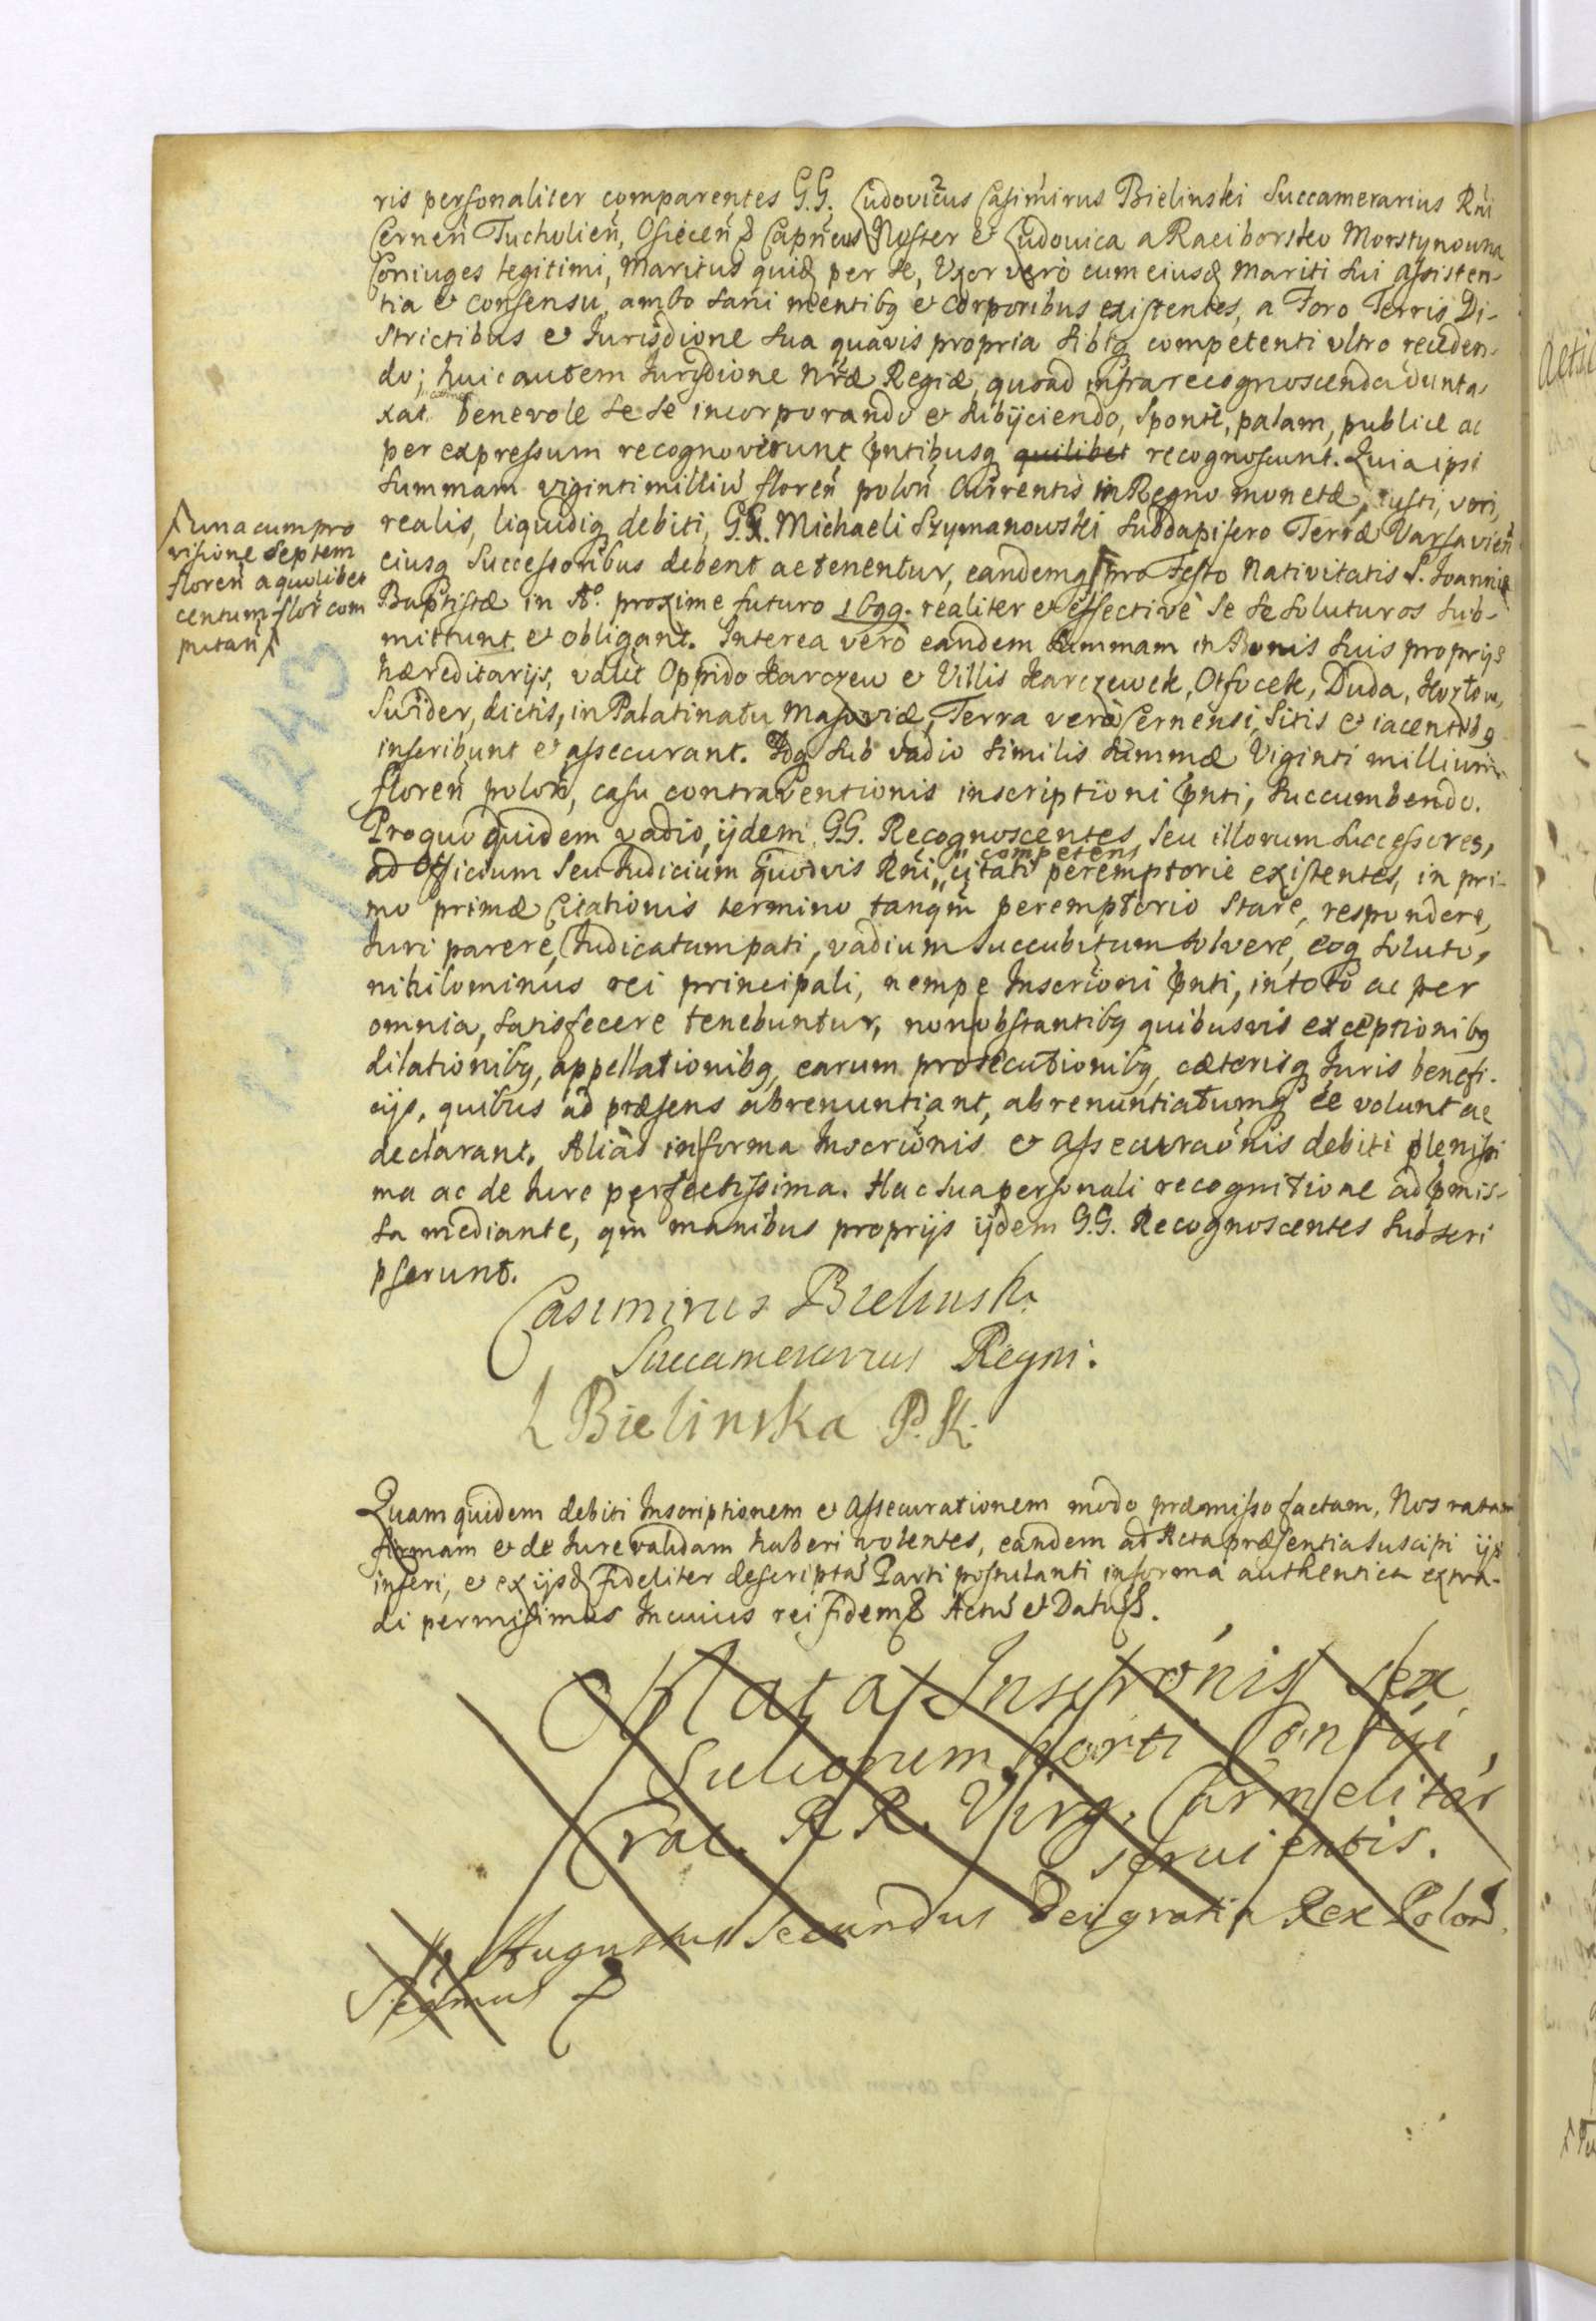 ris personaliter comparentes G.G. Ludovicus Casimirus Bielinski Succamerarius Rni
Cernen Tucholien, Osiecen & Capneus Noster et Ludovica a Raciborsko Morstynowna
Coniuges legitimi, Maritus quid per se, Uxor vero cum eiusd mariti sui assisten-
tia et consensu, ambo sani mentibq et corporibus existentes, a Foro Terris Di-
strictibus et Jurisdione sua quavis propria sibiq competenti ultro receden-
do; huic autem Jurisdione nræ Regiæ, quoad infra recognoscenda dunta-
xat benevole se se incorporando et subijciendo, sponte, palam, publice ac
per expressum recognoverunt pntibusq quilibet recognoscunt. Quia ipsi
summam viginti milliu floren polon currentis in Regno monetæ, iusti, veri,
realis, liquidiq debiti, G.G. Michaeli Szymanowski Subdapifero Terræ Varsavien
eiusq Successoribus debent ac tenentur, eandemq pro Festo Nativitatis S. Joannis
Baptistæ in Ao. proxime futuro 1699. realiter et effective se se soluturos sub-
mittunt et obligant. Interea vero eandem summam in Bonis suis proprijs
hæreditarijs, vdlt Oppido Karczew et Villis Karczewek, Otfocek, Duda,
Swider, dictis, in Palatinatu Masoviæ, Terra vero Cernensi, sitis et iacentibq
inscribunt et assecurant. Idq sub vadio similis summæ Viginti millium
floren polon, casu contraventionis inscriptioni pnti, succumbendo.
Pro quo quidem vadio, ijdem G.G. Recognoscentes, seu illorum successores,
competens
ad Officium seu Judicium quodvis Rni citati peremptorie existentes, in pri-
mo primæ Citationis termino tanqm peremptorio stare, respondere,
Juri parere, Judicatum pati, vadium succubitum solvere, eoq soluto,
nihilominus rei principali, nempe Inscrioni pnti, in toto ac per
omnia, satisfecere tenebuntur, non obstantibq quibusvis exceptionibq
dilationibq, appellationibq, earum prosecutionibq, cæterisq Juris benefi-
cijs, quibus ad præsens abrenuntiant, abrenuntiatumq ee volunt ac
declarant. Alias in forma Inscrionis et Assecuraonis debiti plenissi
ma ac de Jure perfectissima. Hac sua personali recognitione ad pmis-
sa mediante, qm manibus proprijs ijdem G.G. Recognoscentes subscri
pserunt.
∧ una cum pro
visione septem
floren a quolibet
centum flor com
putan ∧
Casimirus Bielinski
Succamerarius Regni.
L Bielinska P.K.
Quam quidem debiti Inscriptionem et Assecurationem modo præmisso factam, Nos ratam
firmam et de Jure validam haberi volentes, eandem ad Acta præsentia suscipi ijs
inseri, et ex ijsd fideliter descripta Parti postulanti in forma authentica extra-
di permisimus In cuius rei fidem & Actu et Datu &.
Oblata Inscrionis sex
Horti
Crac. R R. Virg. Carmelitar
servientis.
Augustus Secundus Dei gratia Rex Polon
Segmus &